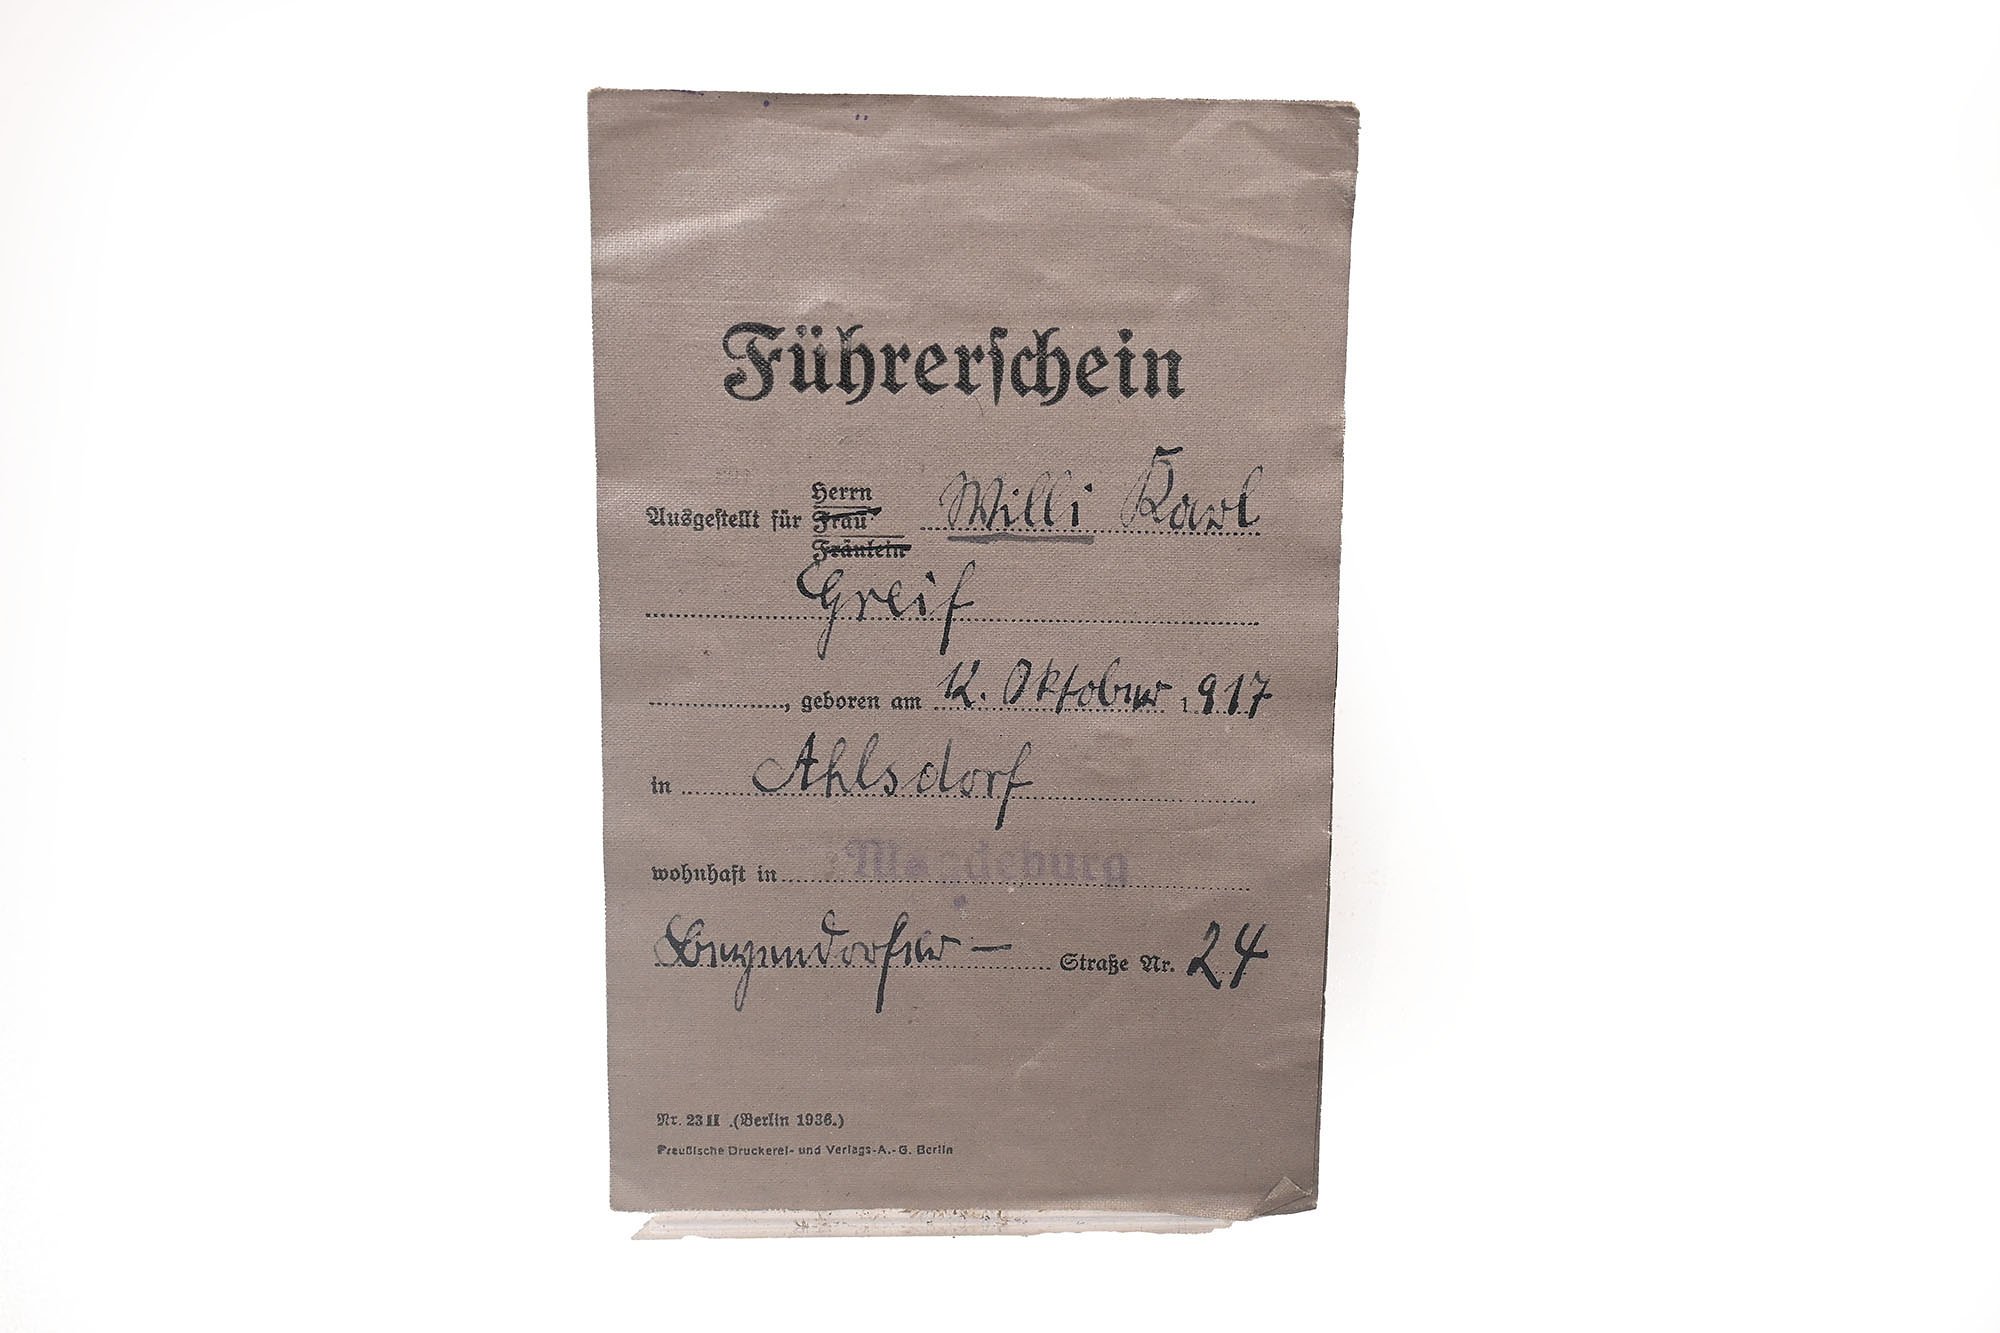 Führerschein
Ausgestellt für Herrn Frau Fräulein Willi Karl
Greif
, geboren am 12. Oktober 1917
in Ahlsdorf
wohnhaft in Magdeburg
Straße Nr. 24
Nr. 23 II .(Berlin 1936.)
Preußische Druckerei- und Verlags-A.-G. Berlin